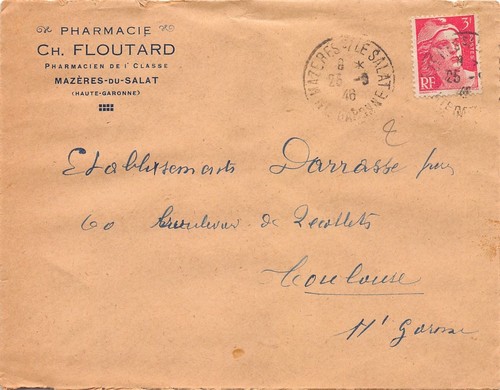 PHARMACIE
CH. FLOUTARD
PHARMACIEN DE 1e CLASSE
MAZÈRES-DU-SALAT
(HAUTE-GARONNE)
MAZERES-
SALAT
8 *
25 -
46
GARONNE
3F
RF
25
46
Etablissements Darrasse
60 boulevar de Recollets
Toulouse
Hte Garonne